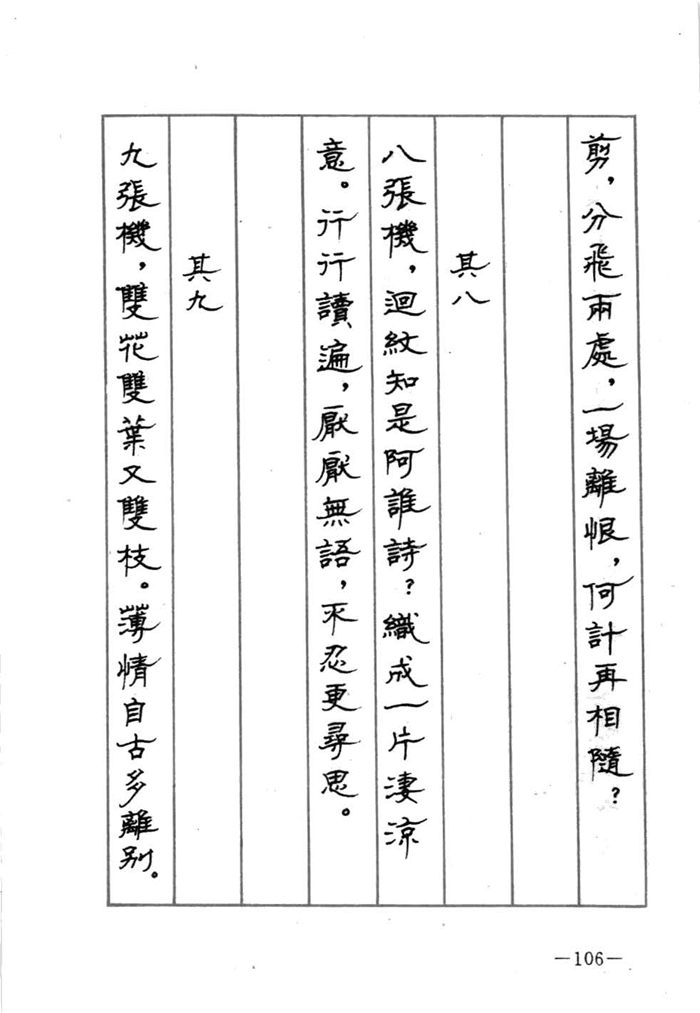 剪，分飛兩處，一場離恨，何計再相隨？
其八
八張機，迴紋知是阿誰詩？織成一片淒涼
意。行行讀遍，厭厭無語，不忍更尋思。
其九
九張機，雙花雙葉又雙枝。薄情自古多離別。
—106—